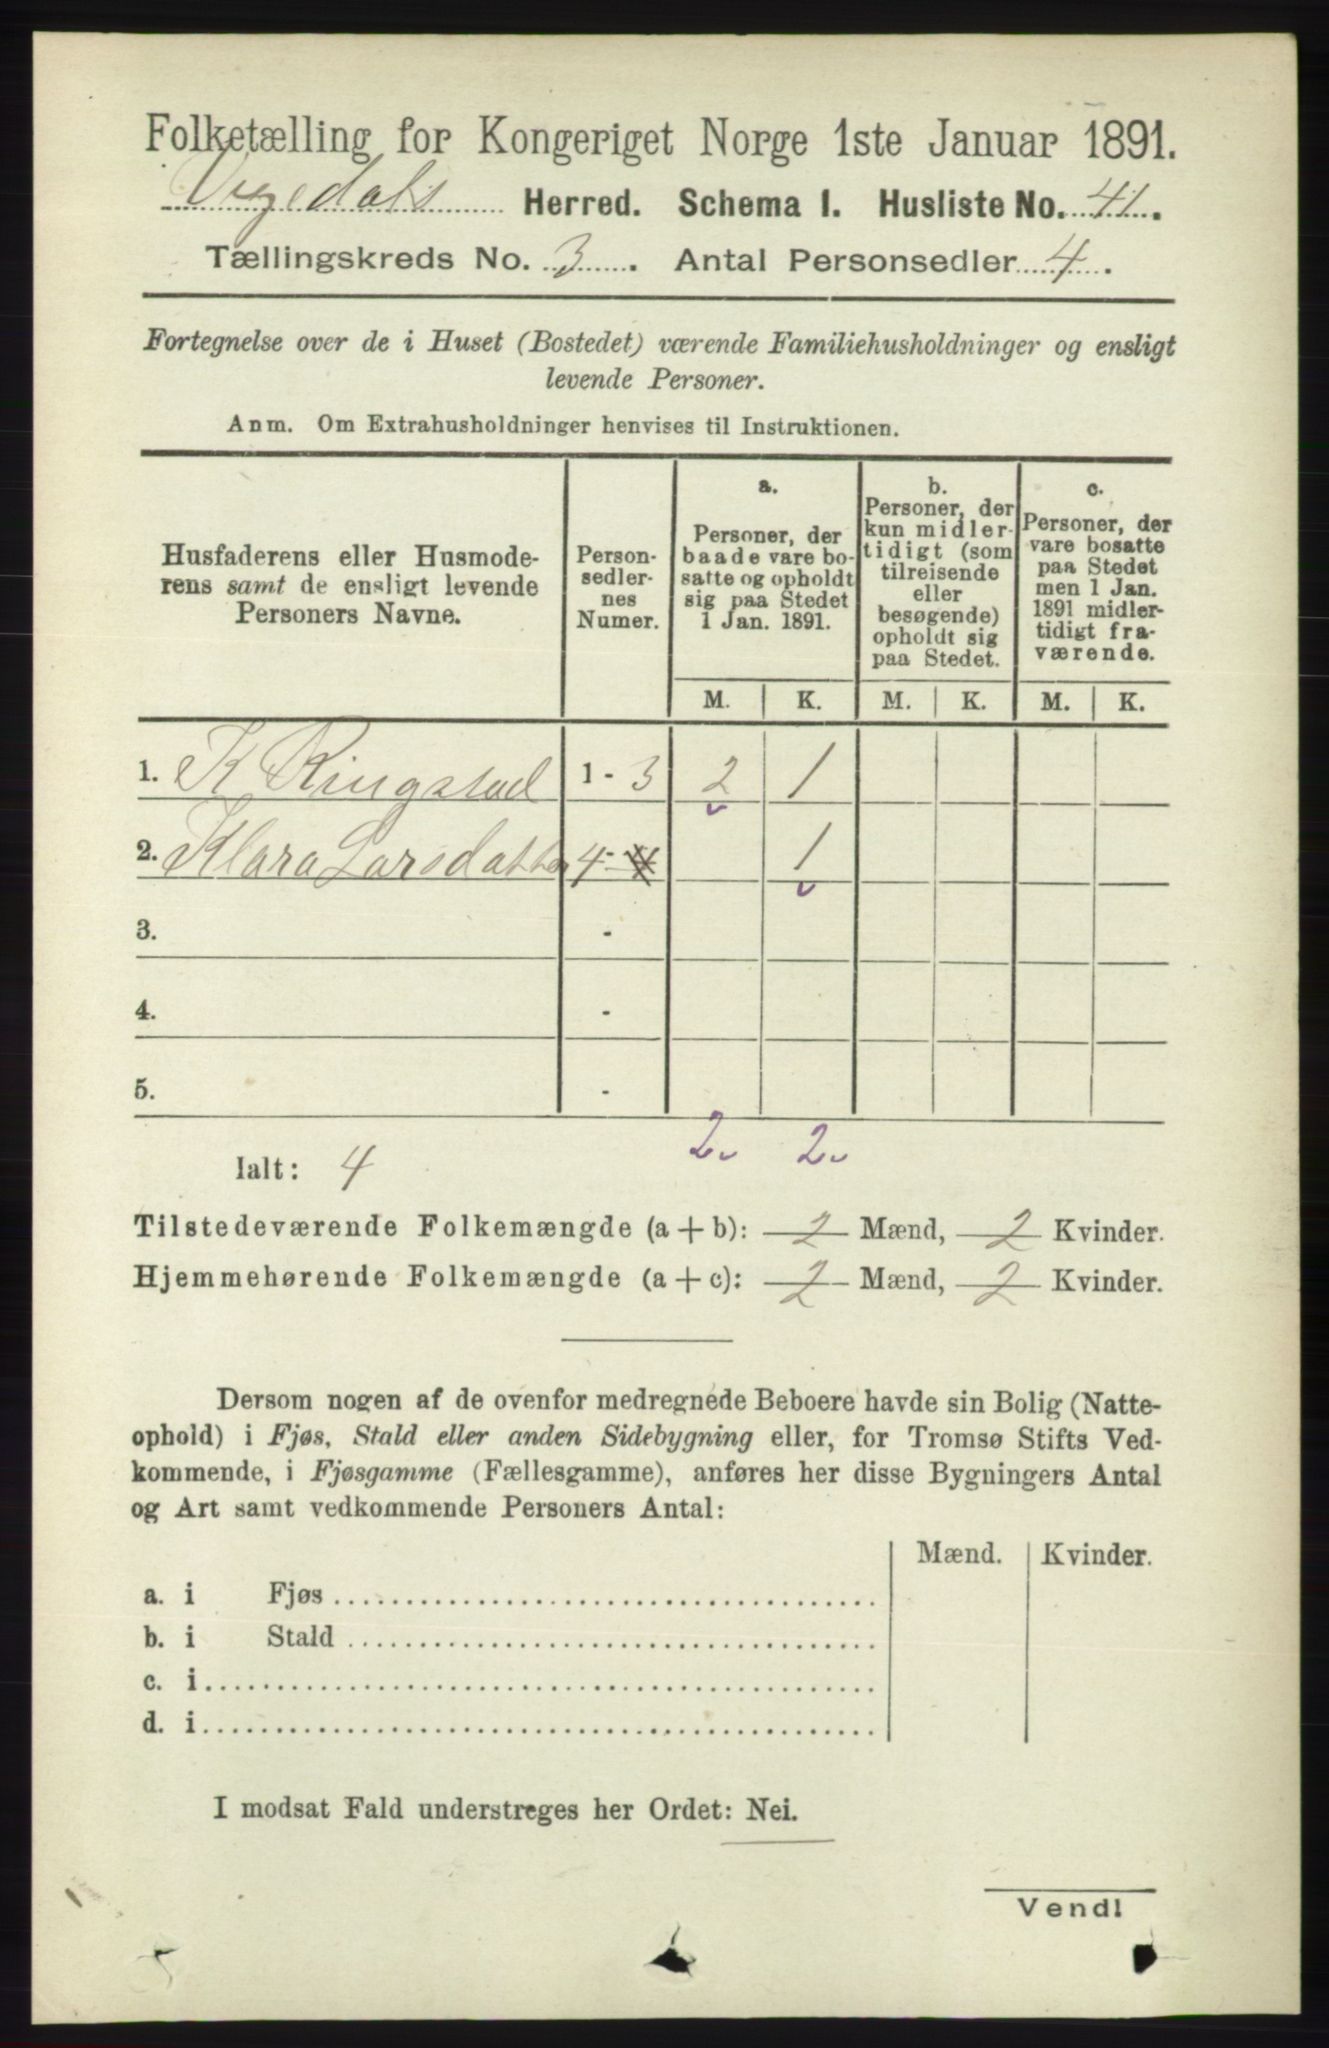 Folketælling for Kongeriget Norge 1ste Januar 1891.
Vigedals Herred. Schema I. Husliste No. 41.
Tællingskreds No. 3. Antal Personsedler 4.
Fortegnelse over de i Huset (Bostedet) værende Familiehusholdninger og ensligt
levende Personer.
Anm. Om Extrahusholdninger henvises til Instruktionen.
Husfaderens eller Husmode-
rens samt de ensligt levende
Personers Navne.
Person-
sedler-
nes
Numer.
a.
Personer, der
baade vare bo-
satte og opholdt
sig paa Stedet
1 Jan. 1891.
b.
Personer, der
kun midler-
tidigt (som
tilreisende
eller
besøgende)
opholdt sig
paa Stedet.
c.
Personer, der
vare bosatte
paa Stedet
men 1 Jan.
1891 midler-
tidigt fra-
værende.
M. K. M. K. M. K.
1. K Ringstad 1 - 3 2 1
2. Klara Larsdatter 4 - 4 1
3. -
4. -
5. -
2 2
Ialt: 4
Tilstedeværende Folkemængde (a + b): 2 Mænd, 2 Kvinder.
Hjemmehørende Folkemængde (a + c): 2 Mænd, 2 Kvinder.
Dersom nogen af de ovenfor medregnede Beboere havde sin Bolig (Natte-
ophold) i Fjøs, Stald eller anden Sidebygning eller, for Tromsø Stifts Ved-
kommende, i Fjøsgamme (Fællesgamme), anføres her disse Bygningers Antal
og Art samt vedkommende Personers Antal:
Mænd. Kvinder.
a. i Fjøs
b. i Stald
c. i
d. i
I modsat Fald understreges her Ordet: Nei.
Vend!